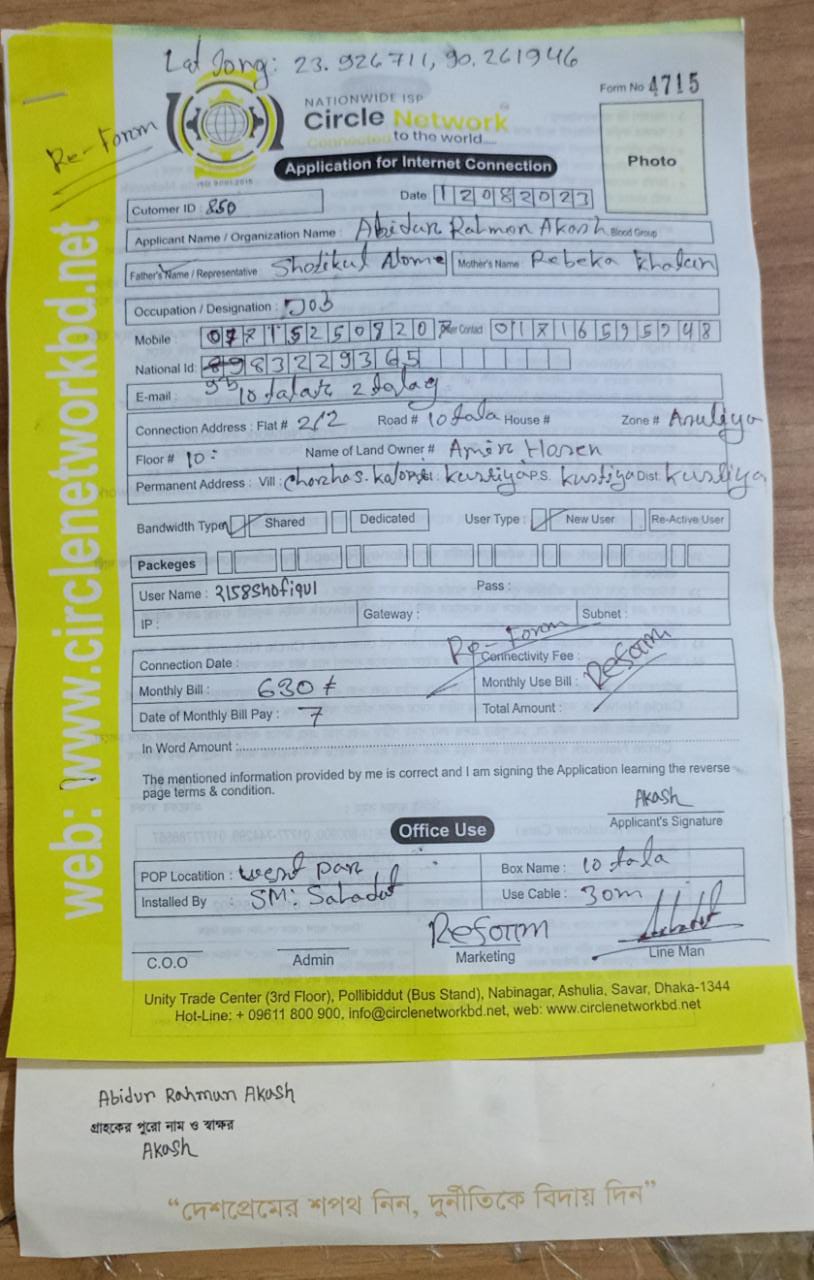 Lat Long: 23.926711, 90.261946
Re-Form
NATIONWIDE ISP
Circle Network
Connected to the world....
ISO 9001:2015
Form No 4715
Application for Internet Connection
Photo
Cutomer ID : 850
Date 12082023
Applicant Name / Organization Name : Abidur Rahman Akash Blood Group
Father's Name / Representative Shofikul Alome Mother's Name Rebeka Khatun
Occupation / Designation : Job
Mobile : Contact 01816595948
National Id:
E-mail
Connection Address : Flat # 2/2 Road # 10 tala House # Zone # Asuliya
Floor # 10: Name of Land Owner # Amir Hosen
Permanent Address : Vill : kustiya P.S. Kustiya Dist. Kustiya
Bandwidth Type Shared Dedicated User Type : New User Re-Active User
Packeges
User Name : 2158Shofiqul Pass :
IP : Gateway : Subnet :
Re-Form
Connection Date : Connectivity Fee :
Monthly Bill : 630 ৳ Monthly Use Bill : Reform
Date of Monthly Bill Pay : 7 Total Amount :
In Word Amount :
The mentioned information provided by me is correct and I am signing the Application learning the reverse
page terms & condition.
Akash
Applicant's Signature
Office Use
POP Locatition : west par Box Name : 10 tala
Installed By : SM: Sahadat Use Cable : 30m
Reform
C.O.O Admin Marketing Line Man
Unity Trade Center (3rd Floor), Pollibiddut (Bus Stand), Nabinagar, Ashulia, Savar, Dhaka-1344
Hot-Line: + 09611 800 900, info@circlenetworkbd.net, web: www.circlenetworkbd.net
web: www.circlenetworkbd.net
Abidur Rahman Akash
গ্রাহকের পুরো নাম ও স্বাক্ষর
Akash
“দেশপ্রেমের শপথ নিন, দুর্নীতিকে বিদায় দিন”